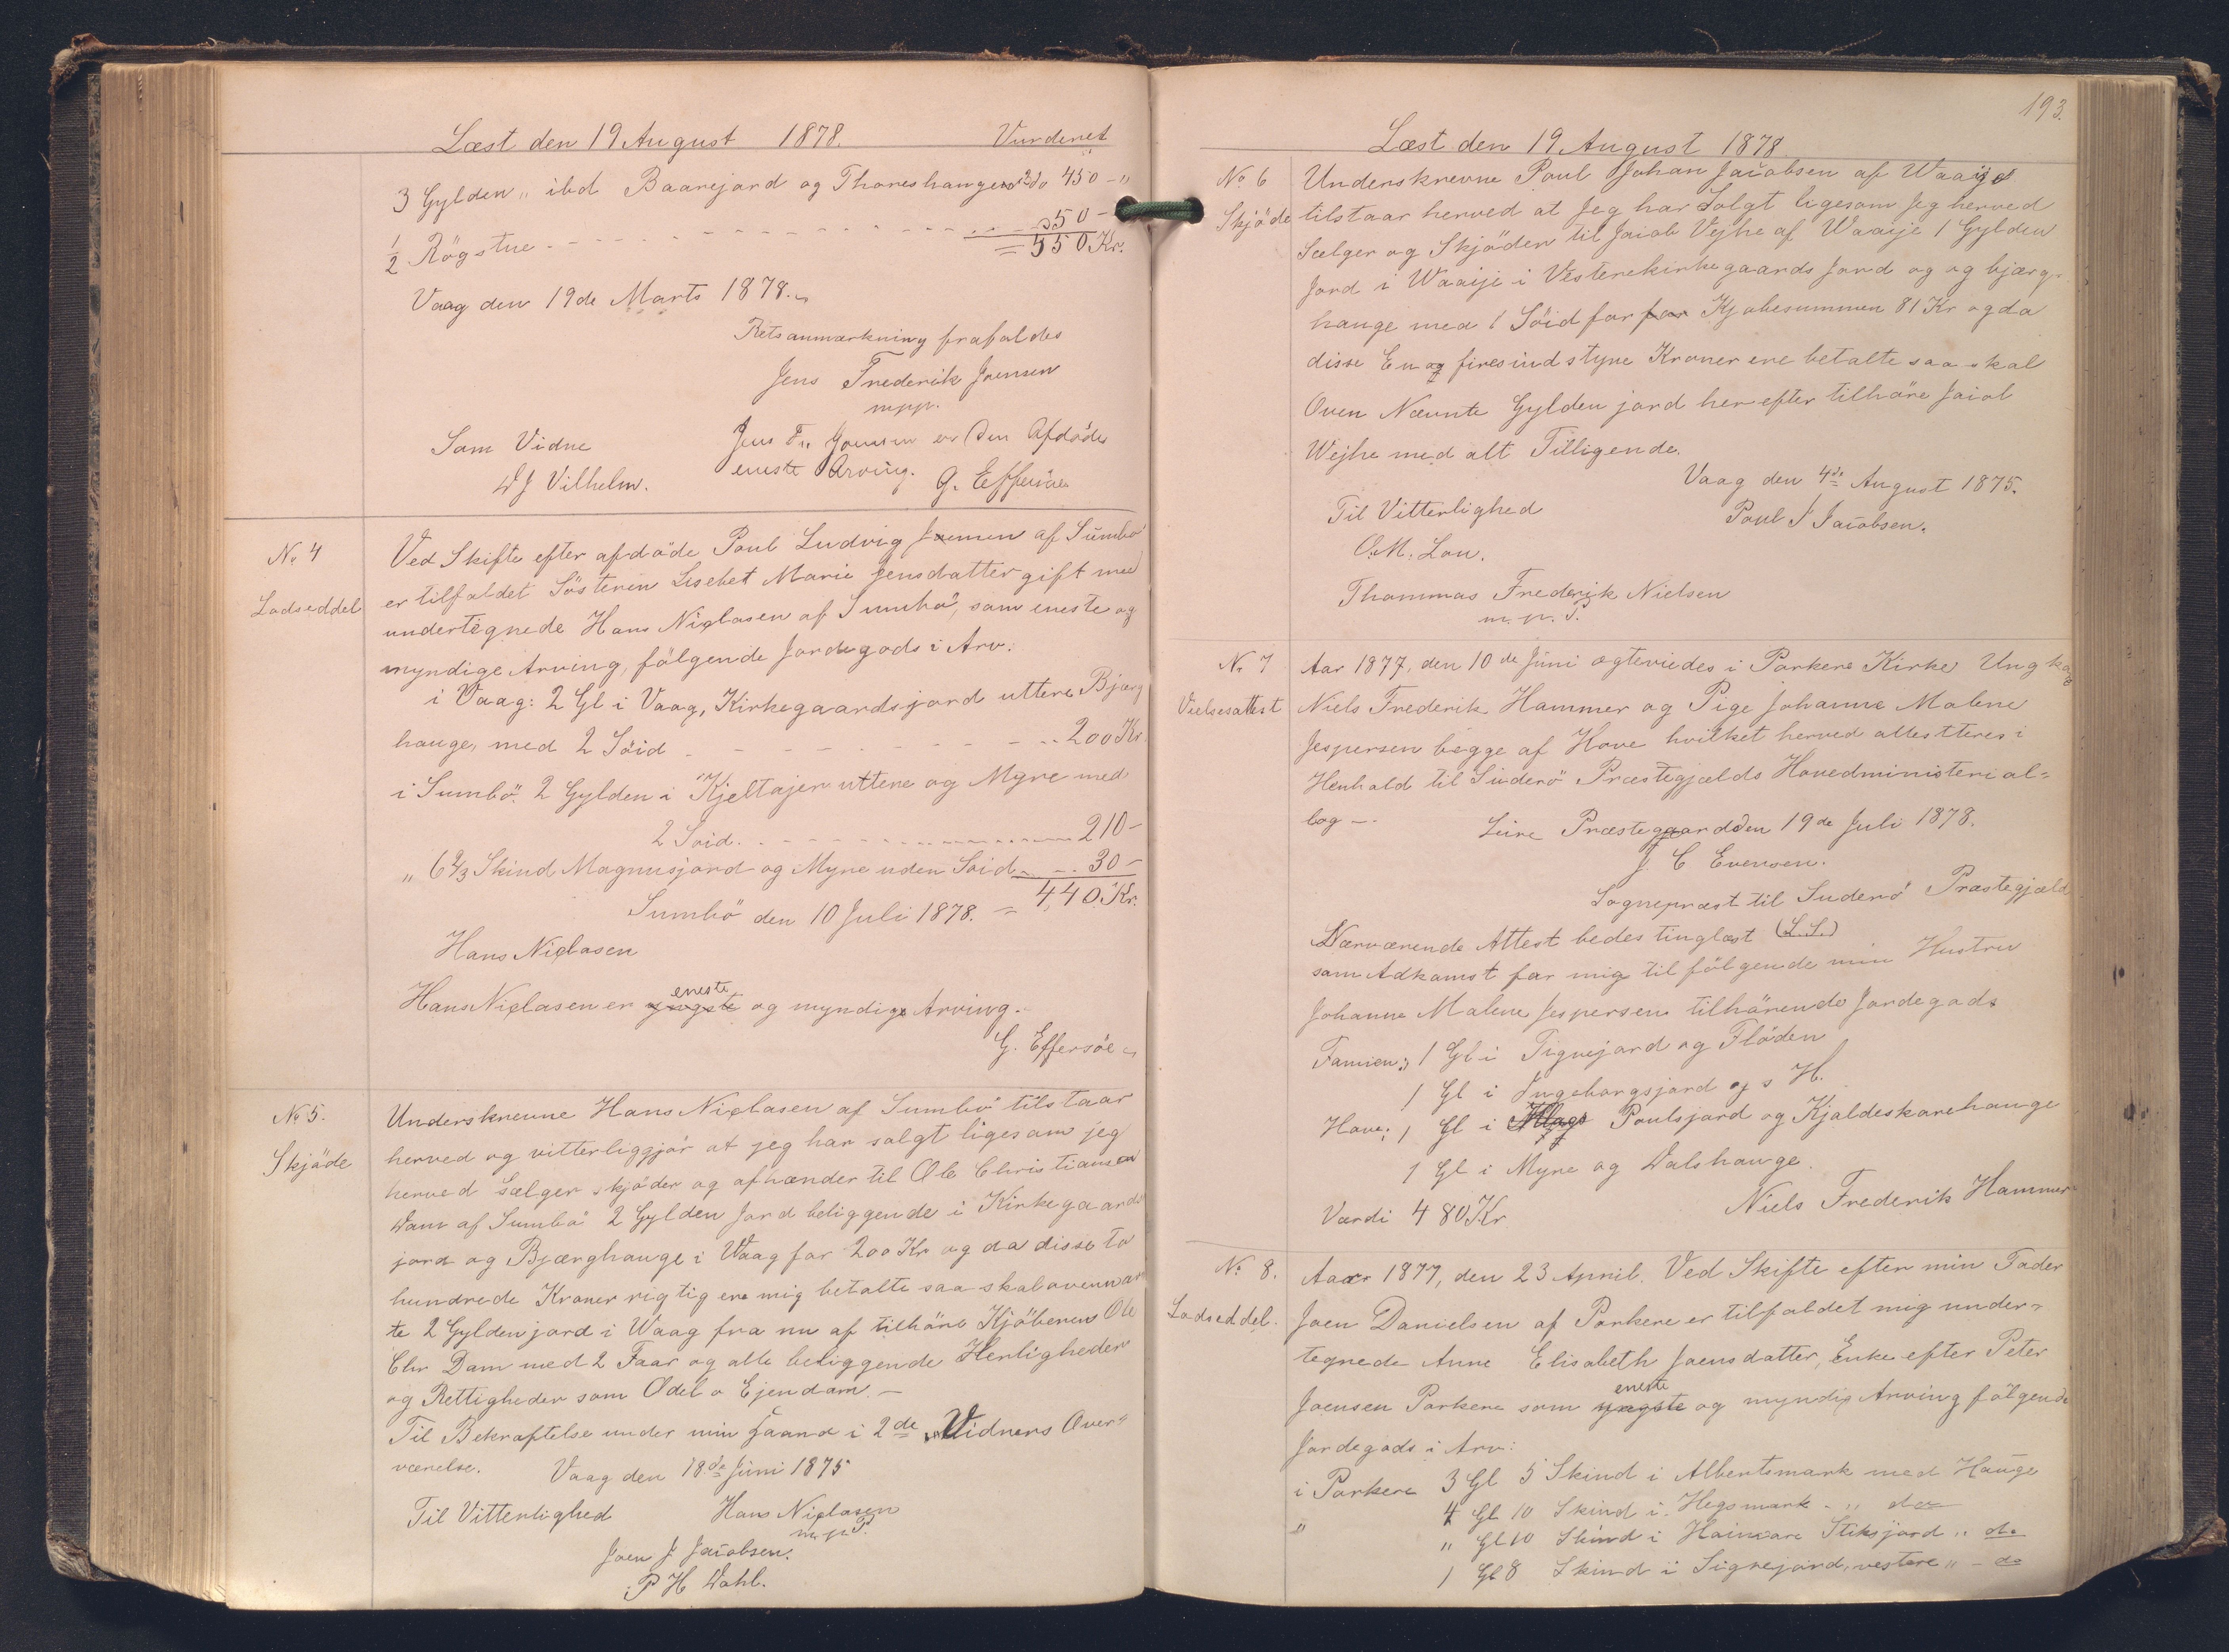 Læst den 19 August 1878. Vurderet
3 Gylden " ibd Baarejord og Thoreshauge 450 - "
1/2 Røgstue - - - 50 -
= 550 Kr.
Vaag den 19de Marts 1878.
Retsanmærkning frafaldes
Jens Frederik Joensen
mpp.
Som Vidne
DJ Vilhelm.
Jens Fr. Joensen er den Afdødes
eneste Arving. G. Effersøe
No 4
Lodseddel
Ved Skifte efter afdøde Poul Ludvig Joensen af Sumbø
er tilfaldet Søsteren Lisebet Marie Jensdatter gift med
undertegnede Hans Niclasen af Sumbø, som eneste og
myndige Arving, følgende Jordegods i Arv:
i Vaag: 2 Gl i Vaag, Kirkegaardsjord uttere Bjærg
hauge, med 2 Söid - - - 200 Kr.
i Sumbö: 2 Gylden i Kjeltajer uttere og Myre med
2 Soid. - - - 210 -
" 6 2/3 Skind Magnusjord og Myre uden Soid - - 30 -
Sumbö den 10 Juli 1878. = 440. Kr.
Hans Niclasen
eneste
Hans Niclasen er yngste og myndige Arving.
G. Effersöe
No 5.
Skjøde
Underskrevne Hans Niclasen af Sumbö tilstaar
herved og vitterliggjör at jeg har solgt ligesom jeg
herved Sælger skjöder og afhænder til Ole Christiansen
Dam af Sumbö 2 Gylden Jord beliggende i Kirkegaards
jord og Bjærghauge i Waag for 200 Kr og da disse to
hundrede Kroner rigtig ere mig betalte saa skal ovennævn
te 2 Gylden jord i Waag fra nu af tilhöre Kjöberen Ole
Chr Dam med 2 Faar og alle beliggende Herligheder
og Rettigheder som Odel o Ejendom. -
Til Bekræftelse under min Haand i 2de Vidners Over"
værelse.
Vaag den 18de Juni 1875
Til Vitterlighed Hans Niclasen
m. p. P.
Joen J Jacobsen.
P H Dahl.
193.
Læst den 19 August 1878
No 6
Skjöde
Underskrevne Poul Johan Jacobsen af Waaije
tilstaar herved at Jeg har Solgt ligesom Jeg herved
Sælger og Skjöder til Jacob Vejhe af Waaije 1 Gylden
Jord i Waaije i Vesterekirkegaards Jord og og bjærg-
hauge med 1 Söid for for Kjøbesummen 81 Kr og da
disse En og firesindstyve Kroner ere betalte saa skal
Oven Nævnte Gylden jord herefter tilhöre Jacob
Wejhe med alt Tilligende.
Vaag den 4de August 1875.
Til Vitterlighed Poul J Jacobsen.
O. M. Lou.
Thommas Frederik Nielsen
m. p. P.
No 7
Vielsesattest
Aar 1877, den 10de Juni ægteviedes i Porkere Kirke Ungkarl
Niels Frederik Hammer og Pige Johanne Malene
Jespersen begge af Hove hvilket herved attesteres i
Henhold til Suderö Præstegjælds Hovedministerial=
bog -.
Præstegaard den 19de Juli 1878.
J. C Evensen.
Sognepræst til Suderö Præstegjæld
Nærværende Attest bedes tinglæst (L.S.)
som Adkomst for mig til fölgende min Hustru
Johanne Malene Jespersen tilhörende Jordegods
Famien: 1 Gl i Tignejord og Flöden
1 Gl i Ingeborgsjord og s H.
Hove: 1 Gl i Poulsjord og Kjoldeskarehauge
1 Gl i Myre og Dalshauge.
Værdi 480 Kr
Niels Frederik Hammer
No 8.
Lodseddel.
Aar 1877, den 23 April. Ved Skifte efter min Fader
Joen Danielsen af Porkere er tilfaldet mig under=
tegnede Anne Elisabeth Joensdatter, Enke efter Peter
eneste
Joensen Porkere som yngste og myndig Arving fölgende
Jordegods i Arv:
i Porkere 3 Gl 5 Skind i Albertsmark med Hauge
" 4 Gl 10 Skind i Hegsmark - " do
" Gl 10 Skind i Stiksjord " do
1 Gl 8 Skind i Signejord, vestere " - do